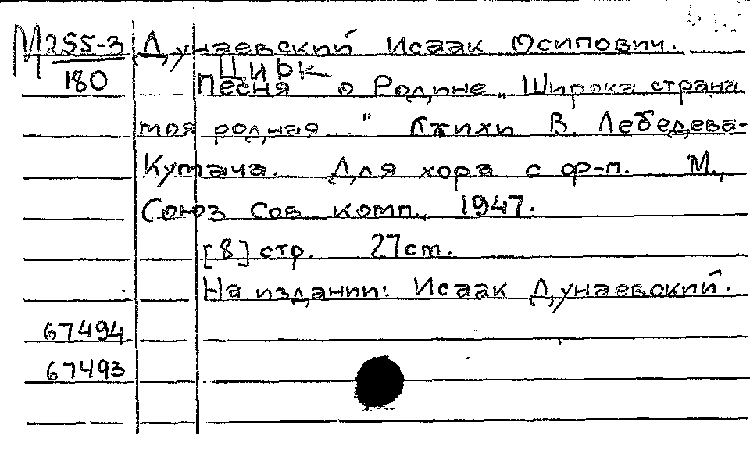 М255-3 Дунаевский Исаак Осипович.
180 Цирк
Песня о Родине „Широка страна
моя родная" Стихи В. Лебедева-
Кумача. Для хора с ф-п. М.,
Союз Сов. комп., 1947.
[8] стр. 27 см.
На издании: Исаак Дунаевский.
67494
67493